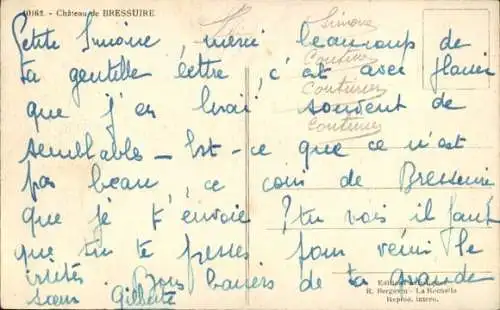 10162. - Château de BRESSUIRE
Petite Simone, merci beaucoup de
ta gentille lettre, c'est avec plaisir
que j'en lirai souvent de
semblables - Est-ce que ce n'est
pas beau, ce coin de Bressuire
que je t'envoie ? tu vois il faut
que tu te presses pour venir le
visiter. Bons baisers de ta grande
sœur Gilberte
Simone
Cousin
Couturier
Couturier
R. Bergevin - La Rochelle
Reprod. interd.